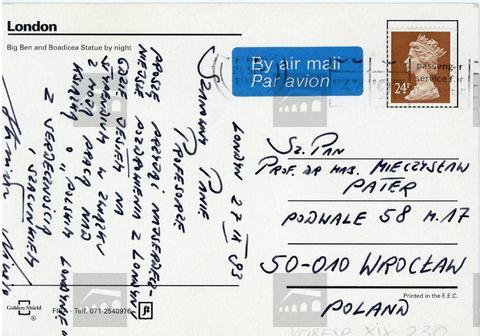 London
Big Ben and Boadicea Statue by night
By air mail
Par avion
passenger
service for
24P
LONDYN 27 IX 93
SZANOWNY PANIE
PROFESORZE
PROSZĘ PRZYJĄĆ NAJSERDECZ-
NIEJSZE POZDROWIENIA Z LONDYNU
GDZIE JESTEM NA
STYPENDIUM W ZWIĄZKU
Z MOJĄ PRACĄ NAD
KSIĄŻKĄ O „POLSKIM LONDYNIE"
Z SERDECZNOŚCIĄ
I SZACUNKIEM
SZ. PAN
PROF. DR HAB. MIECZYSŁAW
PATER
PODWALE 58 M. 17
50-010 WROCŁAW
POLAND
Printed in the E.E.C.
Golden Shield
Telf. 071-2540976
XIX 230